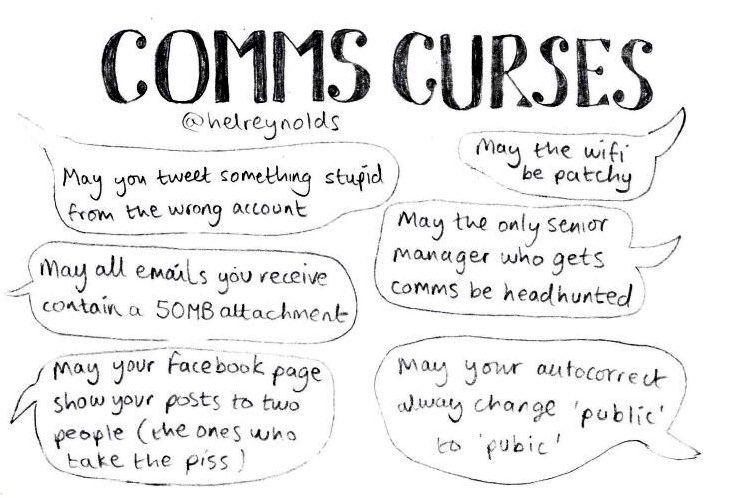 COMMS CURSES
@helreynolds
May you tweet something stupid
from the wrong account
May the wifi
be patchy
May all emails you receive
contain a 50MB attachment
May the only senior
manager who gets
comms be headhunted
May your Facebook page
show your posts to two
people (the ones who
take the piss)
May your autocorrect
alway change 'public'
to 'pubic'